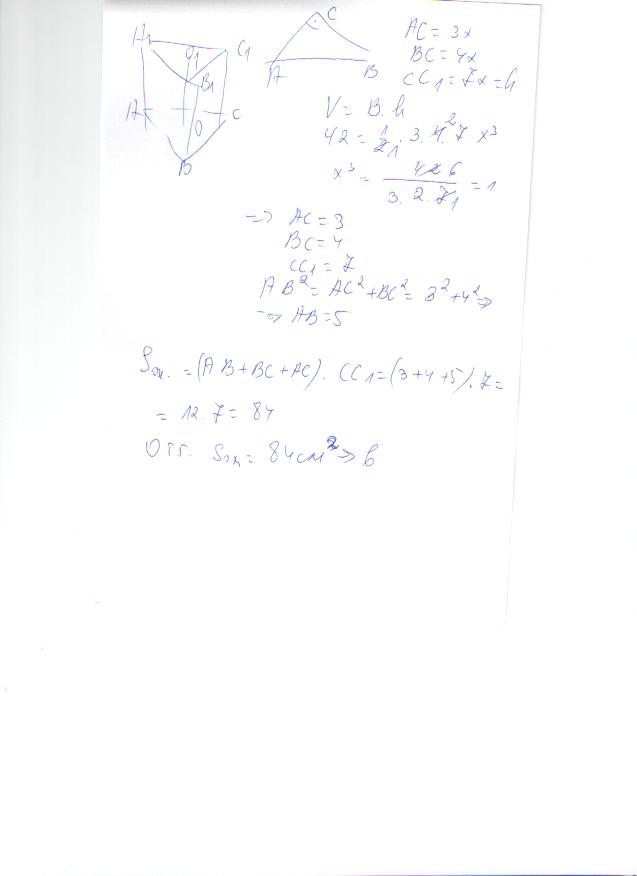 A1 O1 C1
B1
A O C
B
C
A B
AC = 3x
BC = 4x
CC1 = 7x = h
V = B.h
42 = 1/2 . 3.4.7. x³
x³ = 42 6 / 3.2.7 1 = 1
=> AC = 3
BC = 4
CC1 = 7
AB² = AC² + BC² = 3² + 4² =>
=> AB = 5
Sок. = (AB + BC + AC). CC1 = (3 + 4 + 5).7 =
= 12.7 = 84
Отг. Sок = 84 cm² => б